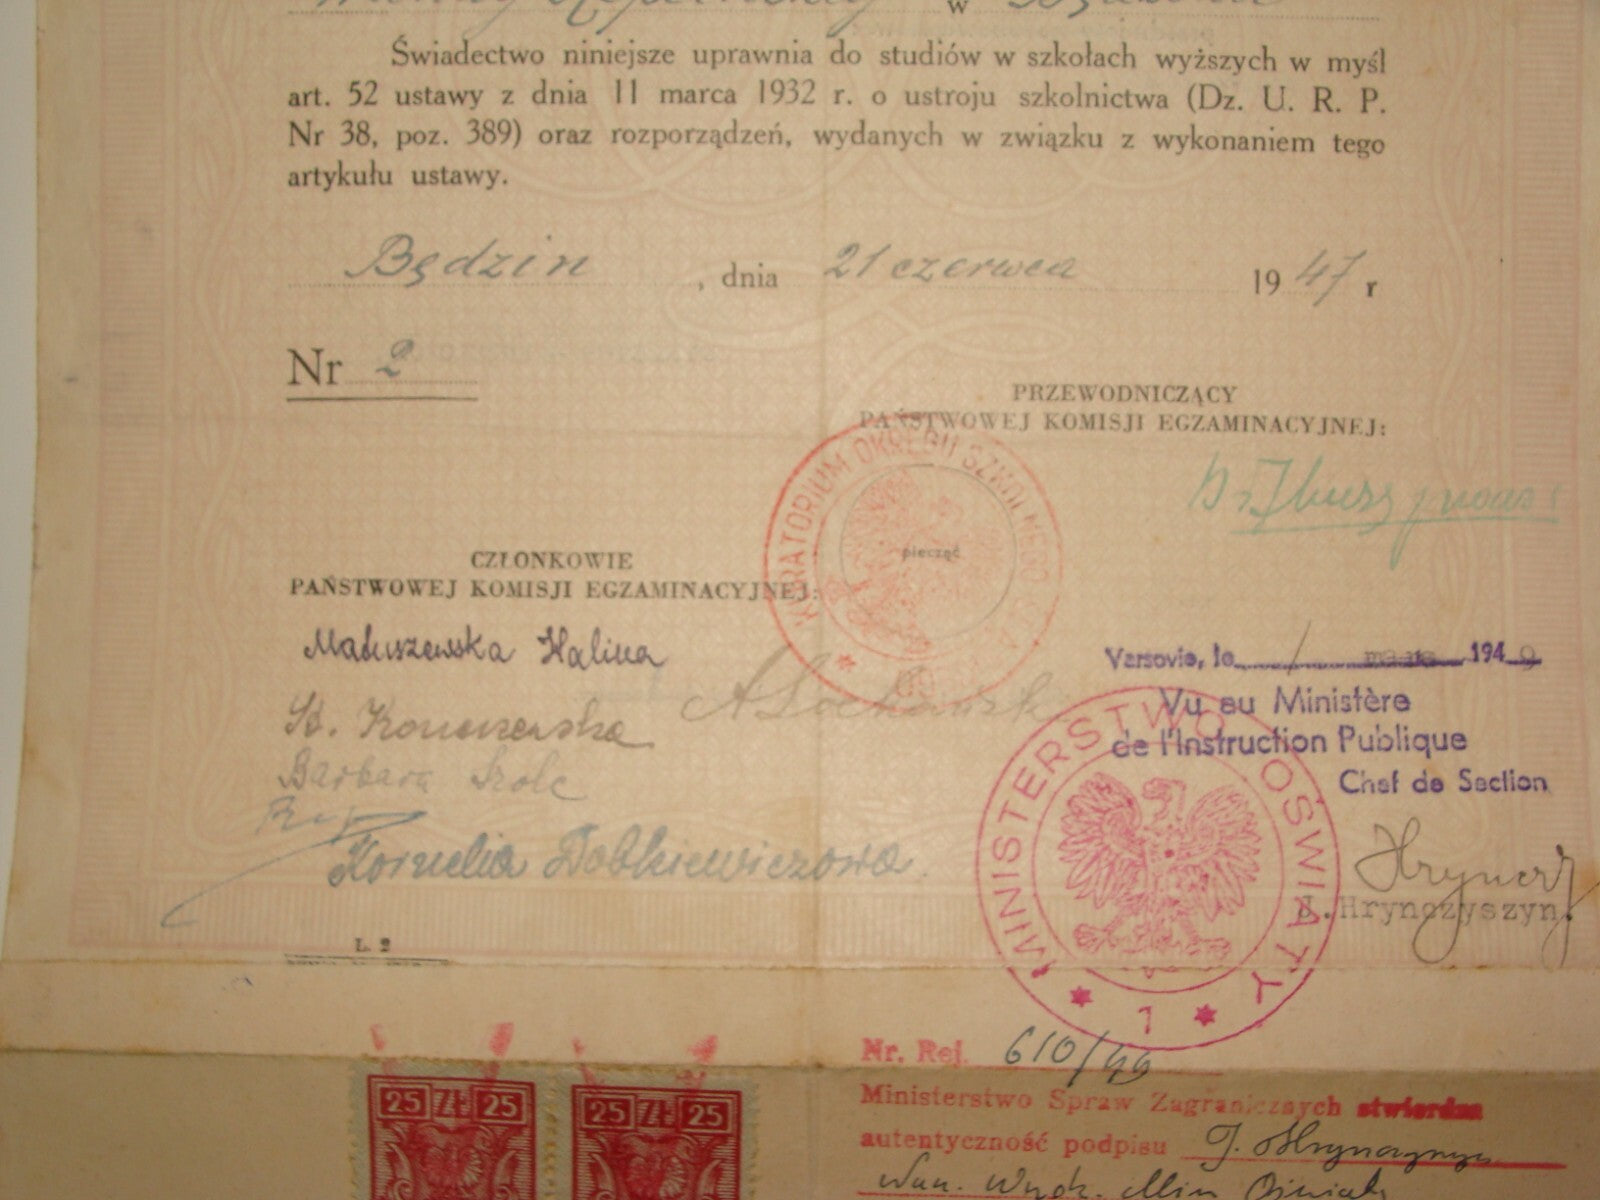 w
Świadectwo niniejsze uprawnia do studiów w szkołach wyższych w myśl
art. 52 ustawy z dnia 11 marca 1932 r. o ustroju szkolnictwa (Dz. U. R. P.
Nr 38, poz. 389) oraz rozporządzeń, wydanych w związku z wykonaniem tego
artykułu ustawy.
Będzin , dnia 21 czerwca 1947 r
Nr 2
PRZEWODNICZĄCY
PAŃSTWOWEJ KOMISJI EGZAMINACYJNEJ:
KURATORIUM OKRĘGU SZKOLNEGO
pieczęć
CZŁONKOWIE
PAŃSTWOWEJ KOMISJI EGZAMINACYJNEJ:
Matuszewska Halina
St.
Barbara
Kornelia
Varsovie, le 1 mars 1949
Vu au Ministère
de l'Instruction Publique
Chef de Section
MINISTERSTWO OŚWIATY
1
J. Hrynczyszyn
L. 2
25 ZŁ 25
25 ZŁ 25
Nr. Rej. 610/49
Ministerstwo Spraw Zagranicznych stwierdza
autentyczność podpisu J.
Wydz. Min Oświaty